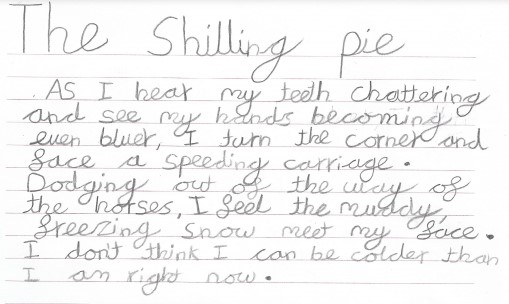 The Shilling pie
As I hear my teeth chattering
and see my hands becoming
even bluer, I turn the corner and
face a speeding carriage.
Dodging out of the way of
the horses, I feel the muddy,
freezing snow meet my face.
I don't think I can be colder than
I am right now.